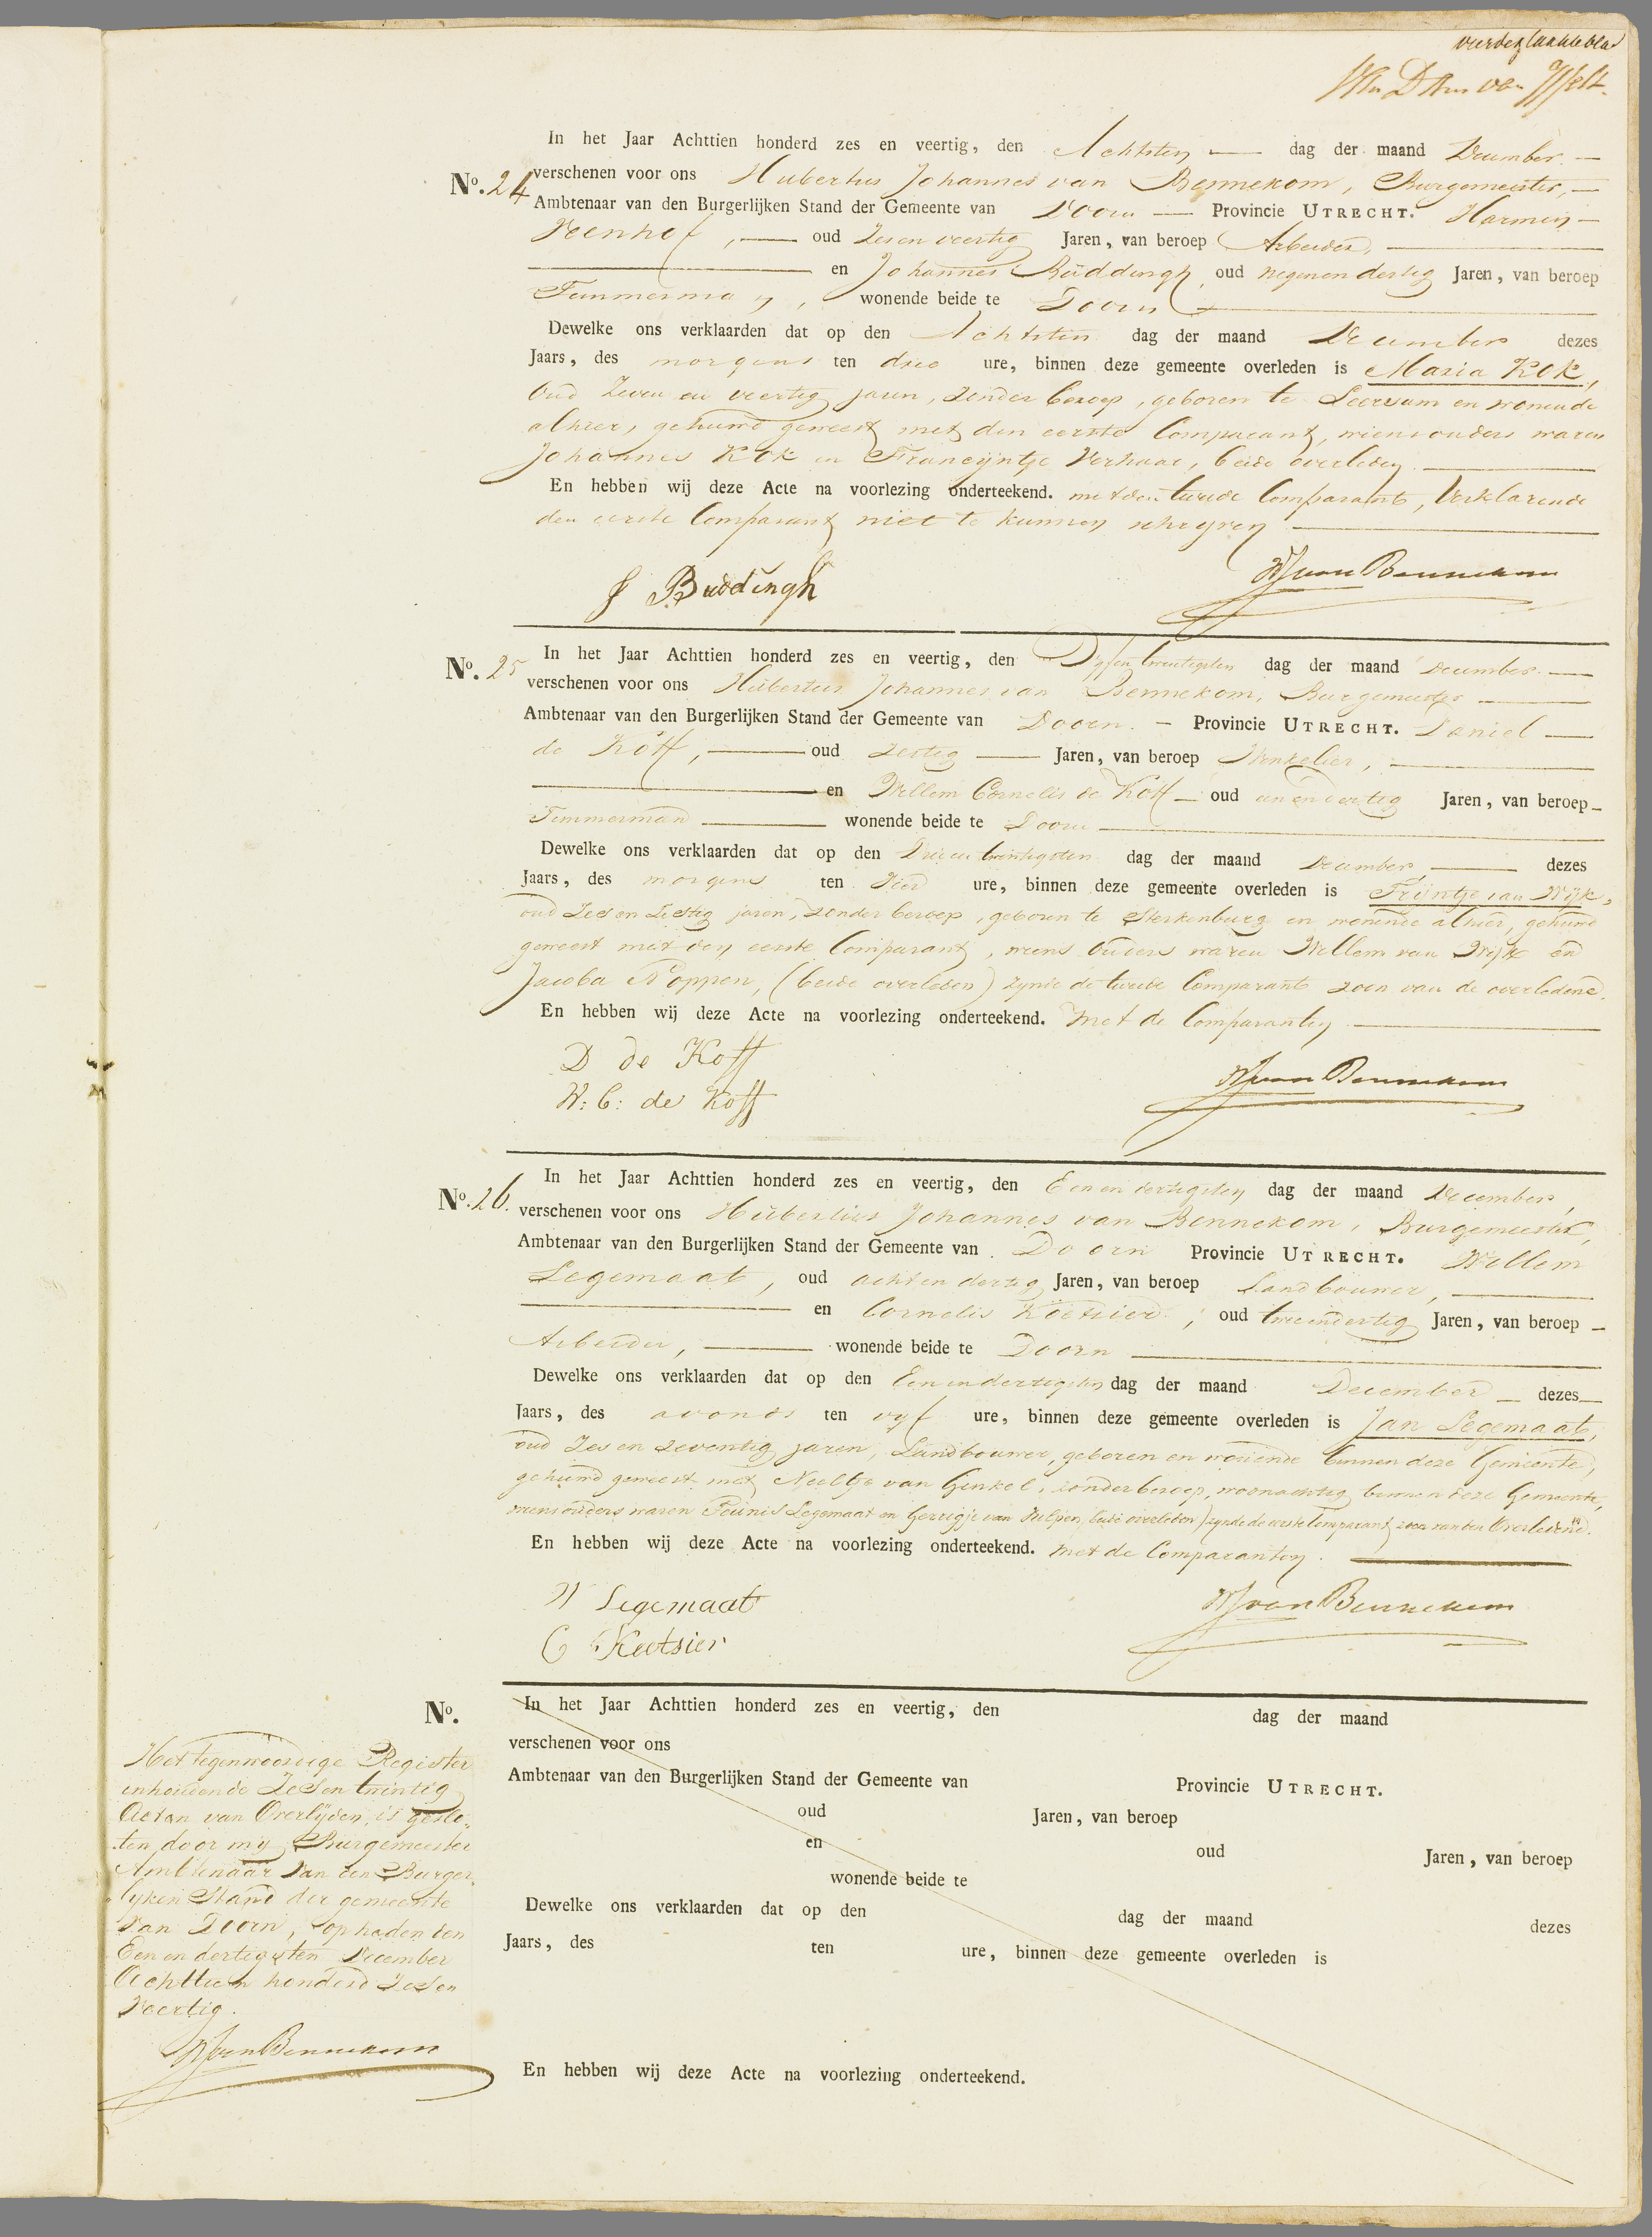 In het Jaar Achttien honderd zes en veertig, den Achtsten — dag der maand December. —
No. 24 verschenen voor ons Hubertus Johannes van Bennekom, Burgemeester, —
Ambtenaar van den Burgerlijken Stand der Gemeente van Doorn — Provincie UTRECHT. Harmen —
Veenhof, — oud Zes en veertig Jaren, van beroep Arbeider, —
— en Johannes Buddingh, oud negenendertig Jaren, van beroep
Timmerman, wonende beide te Doorn —
Dewelke ons verklaarden dat op den Achtsten dag der maand December dezes
Jaars, des morgens ten drie ure, binnen deze gemeente overleden is Maria Kok,
Oud Zeven en veertig jaren, zonder beroep, geboren te Leersum en wonende
alhier, gehuwd geweest met den eerste Comparant, wiens ouders waren
Johannes Kok en Francijntje Verhaar, beide overleden. —
En hebben wij deze Acte na voorlezing onderteekend. met den tweede Comparant, Verklarende
den eerste Comparant niet te kunnen schryven —
J Buddingh HJvan Bennekom
No. 25 In het Jaar Achttien honderd zes en veertig, den Vyfentwintigsten dag der maand December. —
verschenen voor ons Hubertus Johannes van Bennekom, Burgemeester —
Ambtenaar van den Burgerlijken Stand der Gemeente van Doorn. — Provincie UTRECHT. Daniel —
de Koff, — oud zestig — Jaren, van beroep Winkelier, —
— en Willem Cornelis de Koff — oud eenendertig Jaren, van beroep —
Timmerman — wonende beide te Doorn —
Dewelke ons verklaarden dat op den Drieentwintigsten dag der maand December, — dezes
Jaars, des morgens ten Vier ure, binnen deze gemeente overleden is Trijntje van Wijk,
oud Zes en Zestig jaren, zonder beroep, geboren te Sterkenburg en wonende alhier, gehuwd
geweest met den eerste Comparant, wiens Ouders waren Willem van Wijk en
Jacoba Noppen, (beide overleden) zynde de tweede Comparant zoon van de overledene.
En hebben wij deze Acte na voorlezing onderteekend. met de Comparanten —
D de Koff
W: C: de Koff HJvan Bennekom
In het Jaar Achttien honderd zes en veertig, den Eenendertigsten dag der maand December,
No. 26. verschenen voor ons Hubertus Johannes van Bennekom, Burgemeester,
Ambtenaar van den Burgerlijken Stand der Gemeente van Doorn Provincie UTRECHT. Willem
Legemaat, oud achtendertig Jaren, van beroep Landbouwer, —
— en Cornelis Koetsier, oud tweeendertig Jaren, van beroep —
Arbeider, — wonende beide te Doorn —
Dewelke ons verklaarden dat op den Eenendertigsten dag der maand December — dezes —
Jaars, des avonds ten vyf ure, binnen deze gemeente overleden is Jan Legemaat,
oud Zes en zeventig jaren, Landbouwer, geboren en wonende binnen deze Gemeente,
gehuwd geweest met Neeltje van Ginkel, zonder beroep, woonachtig binnen deze Gemeente,
wiens ouders waren Teunis Legemaat en Gerrigje van Hulpen, beide overleden) zynde de eerste Comparant zoon van den Overledene.
En hebben wij deze Acte na voorlezing onderteekend. met de Comparanten. —
W Legemaat HJvan Bennekom
C Koetsier
No. In het Jaar Achttien honderd zes en veertig, den dag der maand
verschenen voor ons
Ambtenaar van den Burgerlijken Stand der Gemeente van Provincie UTRECHT.
oud Jaren, van beroep
en oud Jaren, van beroep
wonende beide te
Dewelke ons verklaarden dat op den dag der maand dezes
Jaars, des ten ure, binnen deze gemeente overleden is
En hebben wij deze Acte na voorlezing onderteekend.
Het tegenwoordige Register
inhoudende Zes en twintig
Acten van Overlijden, is geslo-
ten door mij Burgemeester
Ambtenaar Van den Burger
lyken Stand der gemeente
Van Doorn, op heden den
Een en dertigsten December
Achttien honderd Zes en
Veertig.
HJvan Bennekom